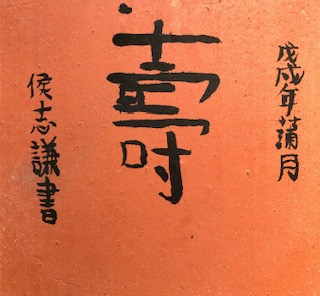 戊戌年蒲月
壽
侯志謙書